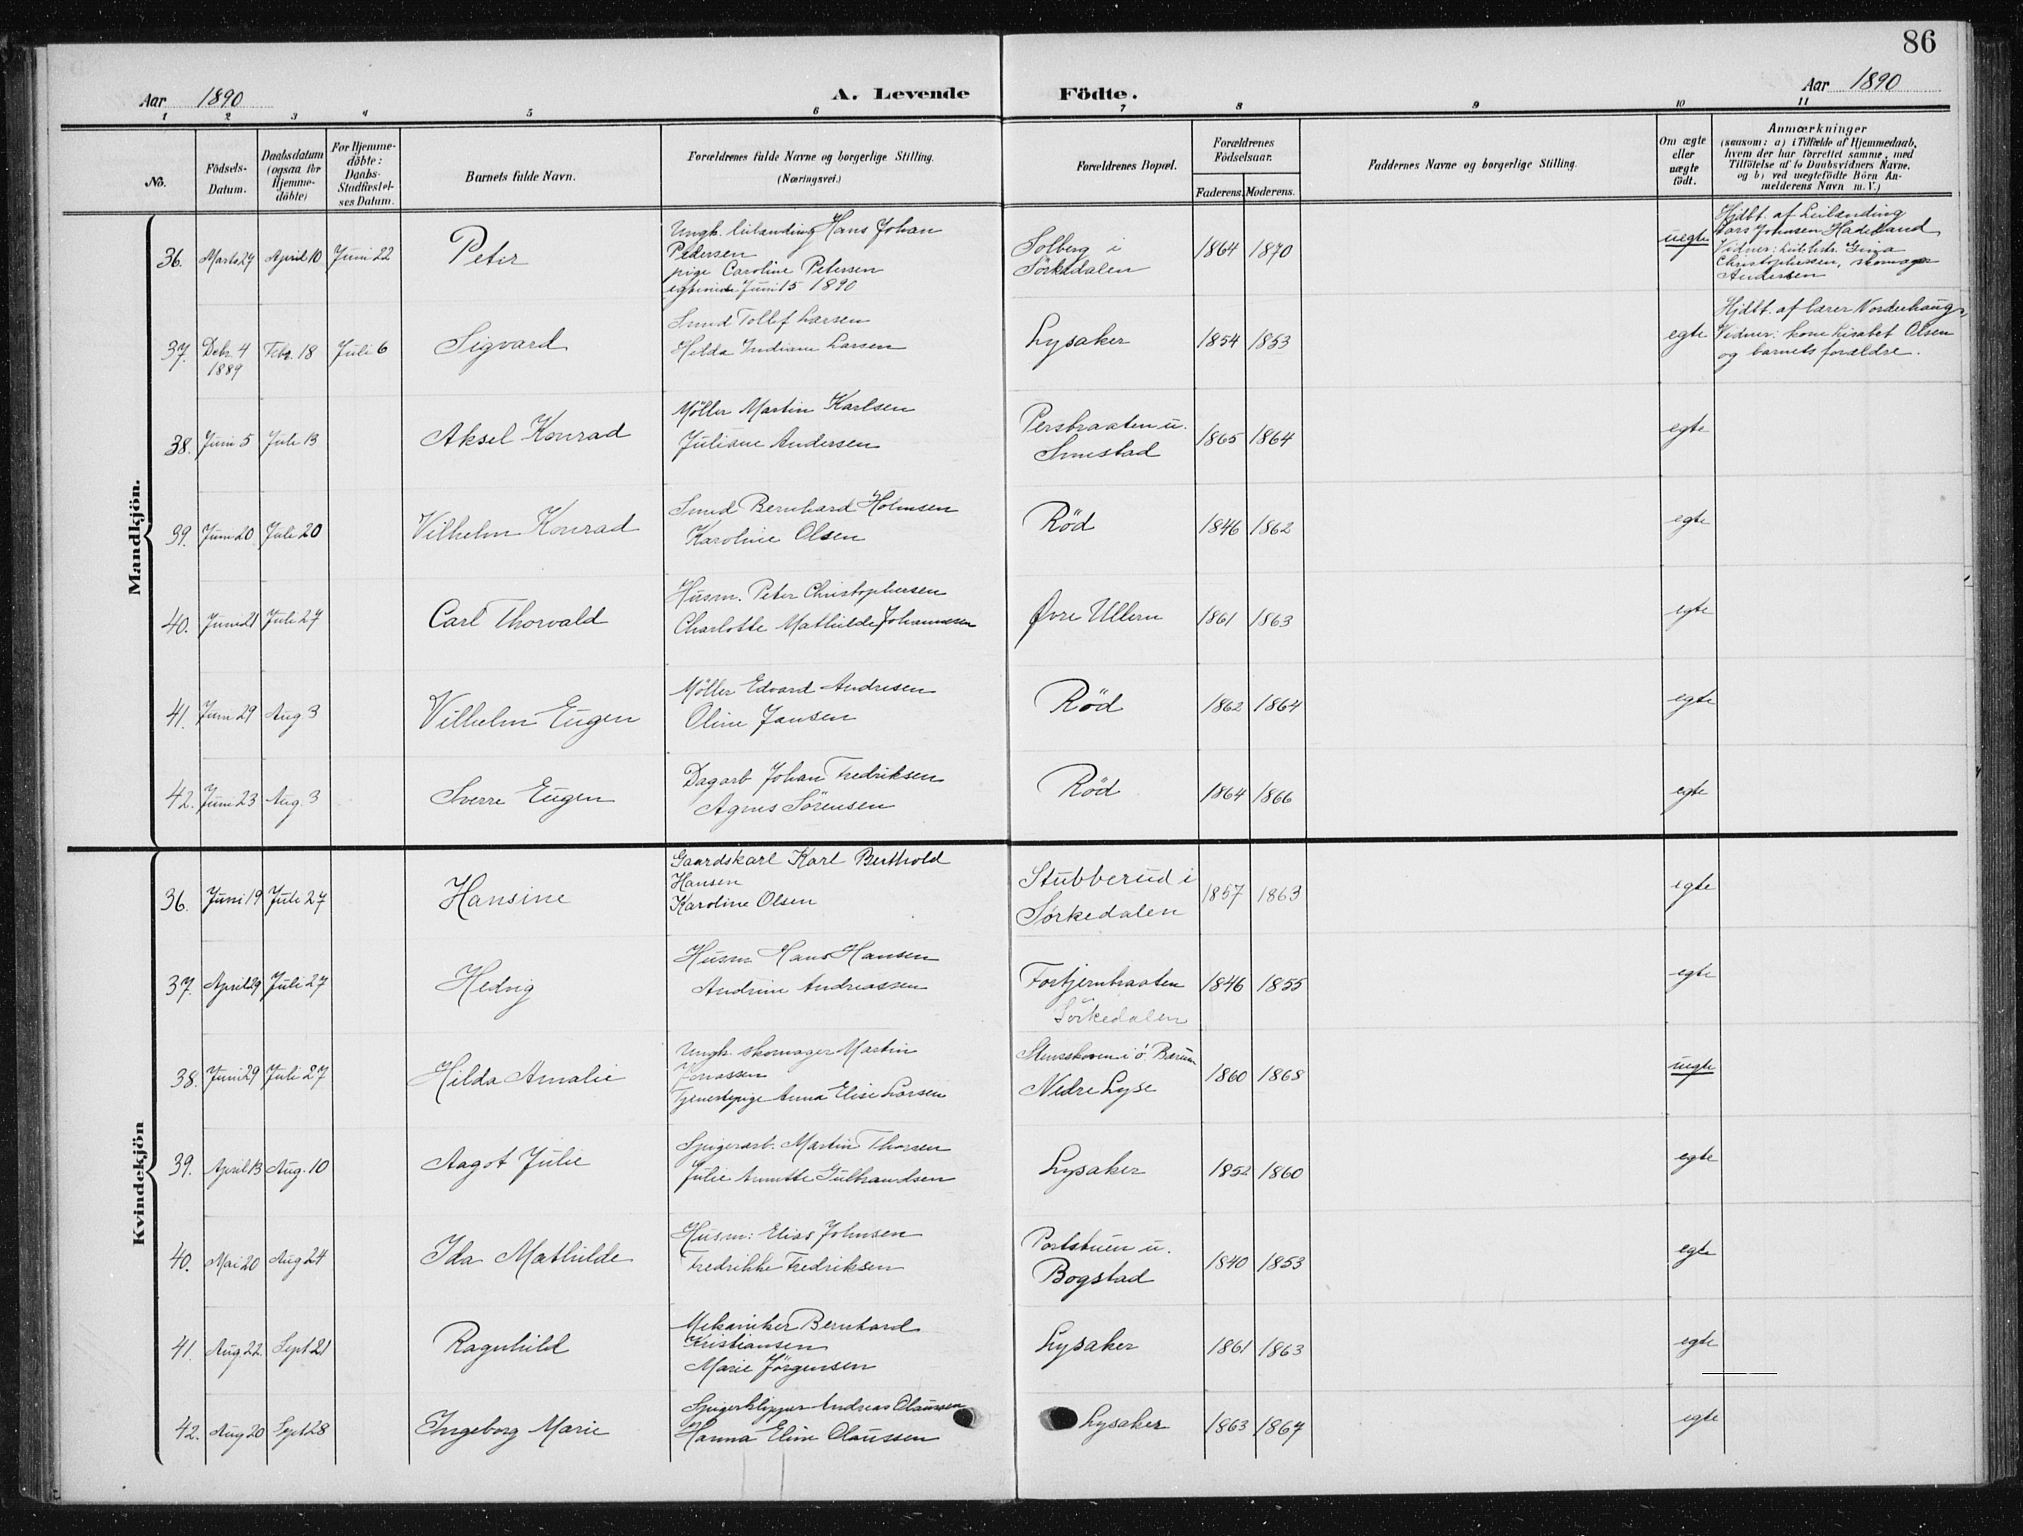 86
Aar 1890
A. Levende Födte.
Aar 1890
1 2 3 4 5 6 7 8 9 10 11
No.
Födsels-Datum.
Daabsdatum (ogsaa for Hjemme-döbte)
For Hjemme-döbte: Daabs-Stadfæstel-ses Datum.
Barnets fulde Navn.
Forældrenes fulde Navne og borgerlige Stilling.
(Næringsvei.)
Forældrenes Bopæl.
Forældrenes Födselsaar.
Faderens. Moderens.
Faddernes Navne og borgerlige Stilling.
Om ægte eller uægte födt.
Anmærkninger
(saasom: a) i Tilfælde af Hjemmedaab,
hvem der har forrettet samme, med
Tilföielse af to Daabsvidners Navne.
og b) ved uægtefödte Börn An-
melderens Navn m. V.)
Mandkjön.
36. Marts 24 April 10 Juni 22 Peter
Ungk. leilending Hans Johan
Pedersen
pige Caroline Petersen
Juni 15 1890
Solberg i
Sörkedalen
1864 1870 uegte
Hjdbt. af Leilending
Lars Johnsen Hadeland
Vidner: Gina
Christophersen, skomager
Andersen
37. Debr. 4 1889 Febr. 18 Juli 6 Sigvard
Smed Tollef Larsen
Hilda Indiane Larsen
Lysaker 1854 1853 egte
Hjdbt. af lærer Norderhaug,
Vidner: kone Lisabet Olsen
og barnets forældre.
38. Juni 5 Juli 13 Aksel Konrad
Møller Martin Karlsen
Juliane Andersen
Persbraaten u.
Smestad
1865 1864 egte
39. Juni 20 Juli 20 Vilhelm Konrad
Smed Bernhard Holmsen
Karoline Olsen
Rød 1846 1862 egte
40. Juni 21 Juli 27 Carl Thorvald
Husm. Peter Christophersen
Charlotte Mathilde Johannesen
Øvre Ullern 1861 1863 egte
41. Juni 29 Aug 3 Vilhelm Eugen
Møller Edvard Andresen
Oline Jansen
Rød 1862 1864 egte
42. Juni 23 Aug. 3 Sverre Eugen
Dagarb Johan Fredriksen
Agnes Sörensen
Rød 1864 1866 egte
Kvindekjön
36. Juni 19 Juli 27 Hansine
Gaardskarl Karl Berthold
Hansen
Karoline Olsen
Stubberud i
Sørkedalen
1857 1863 egte
37. April 29 Juli 27 Hedvig
Husm. Hans Hansen
Andrine Andreassen
Fortjernbraaten
Sörkedalen
1846 1855 egte
38. Juni 29 Juli 27 Hilda Amalie
Ungk. skomager Martin
Jonassen
Tjenestepige Anna Elise Larsen
i ö. Bærum
Nedre Lyse
1860 1868 uegte
39. April 13 Aug. 10 Aagot Julie
Spigerarb. Martin Thorsen
Julie Annette Gulbrandsen
Lysaker 1852 1860 egte
40. Mai 20 Aug 24 Ida Mathilde
Husm: Elias Johnsen
Fredrikke Fredriksen
Portstuen u.
Bogstad
1840 1853 egte
41. Aug 22. Sept 21 Ragnhild
Mekaniker Bernhard
Kristiansen
Marie Jørgensen
Lysaker 1861 1863 egte
42. Aug 20 Sept 28 Ingeborg Marie
Spigerklipper Andreas Olaussen
Hanna Eline Olaussen
Lysaker 1863 1867 egte